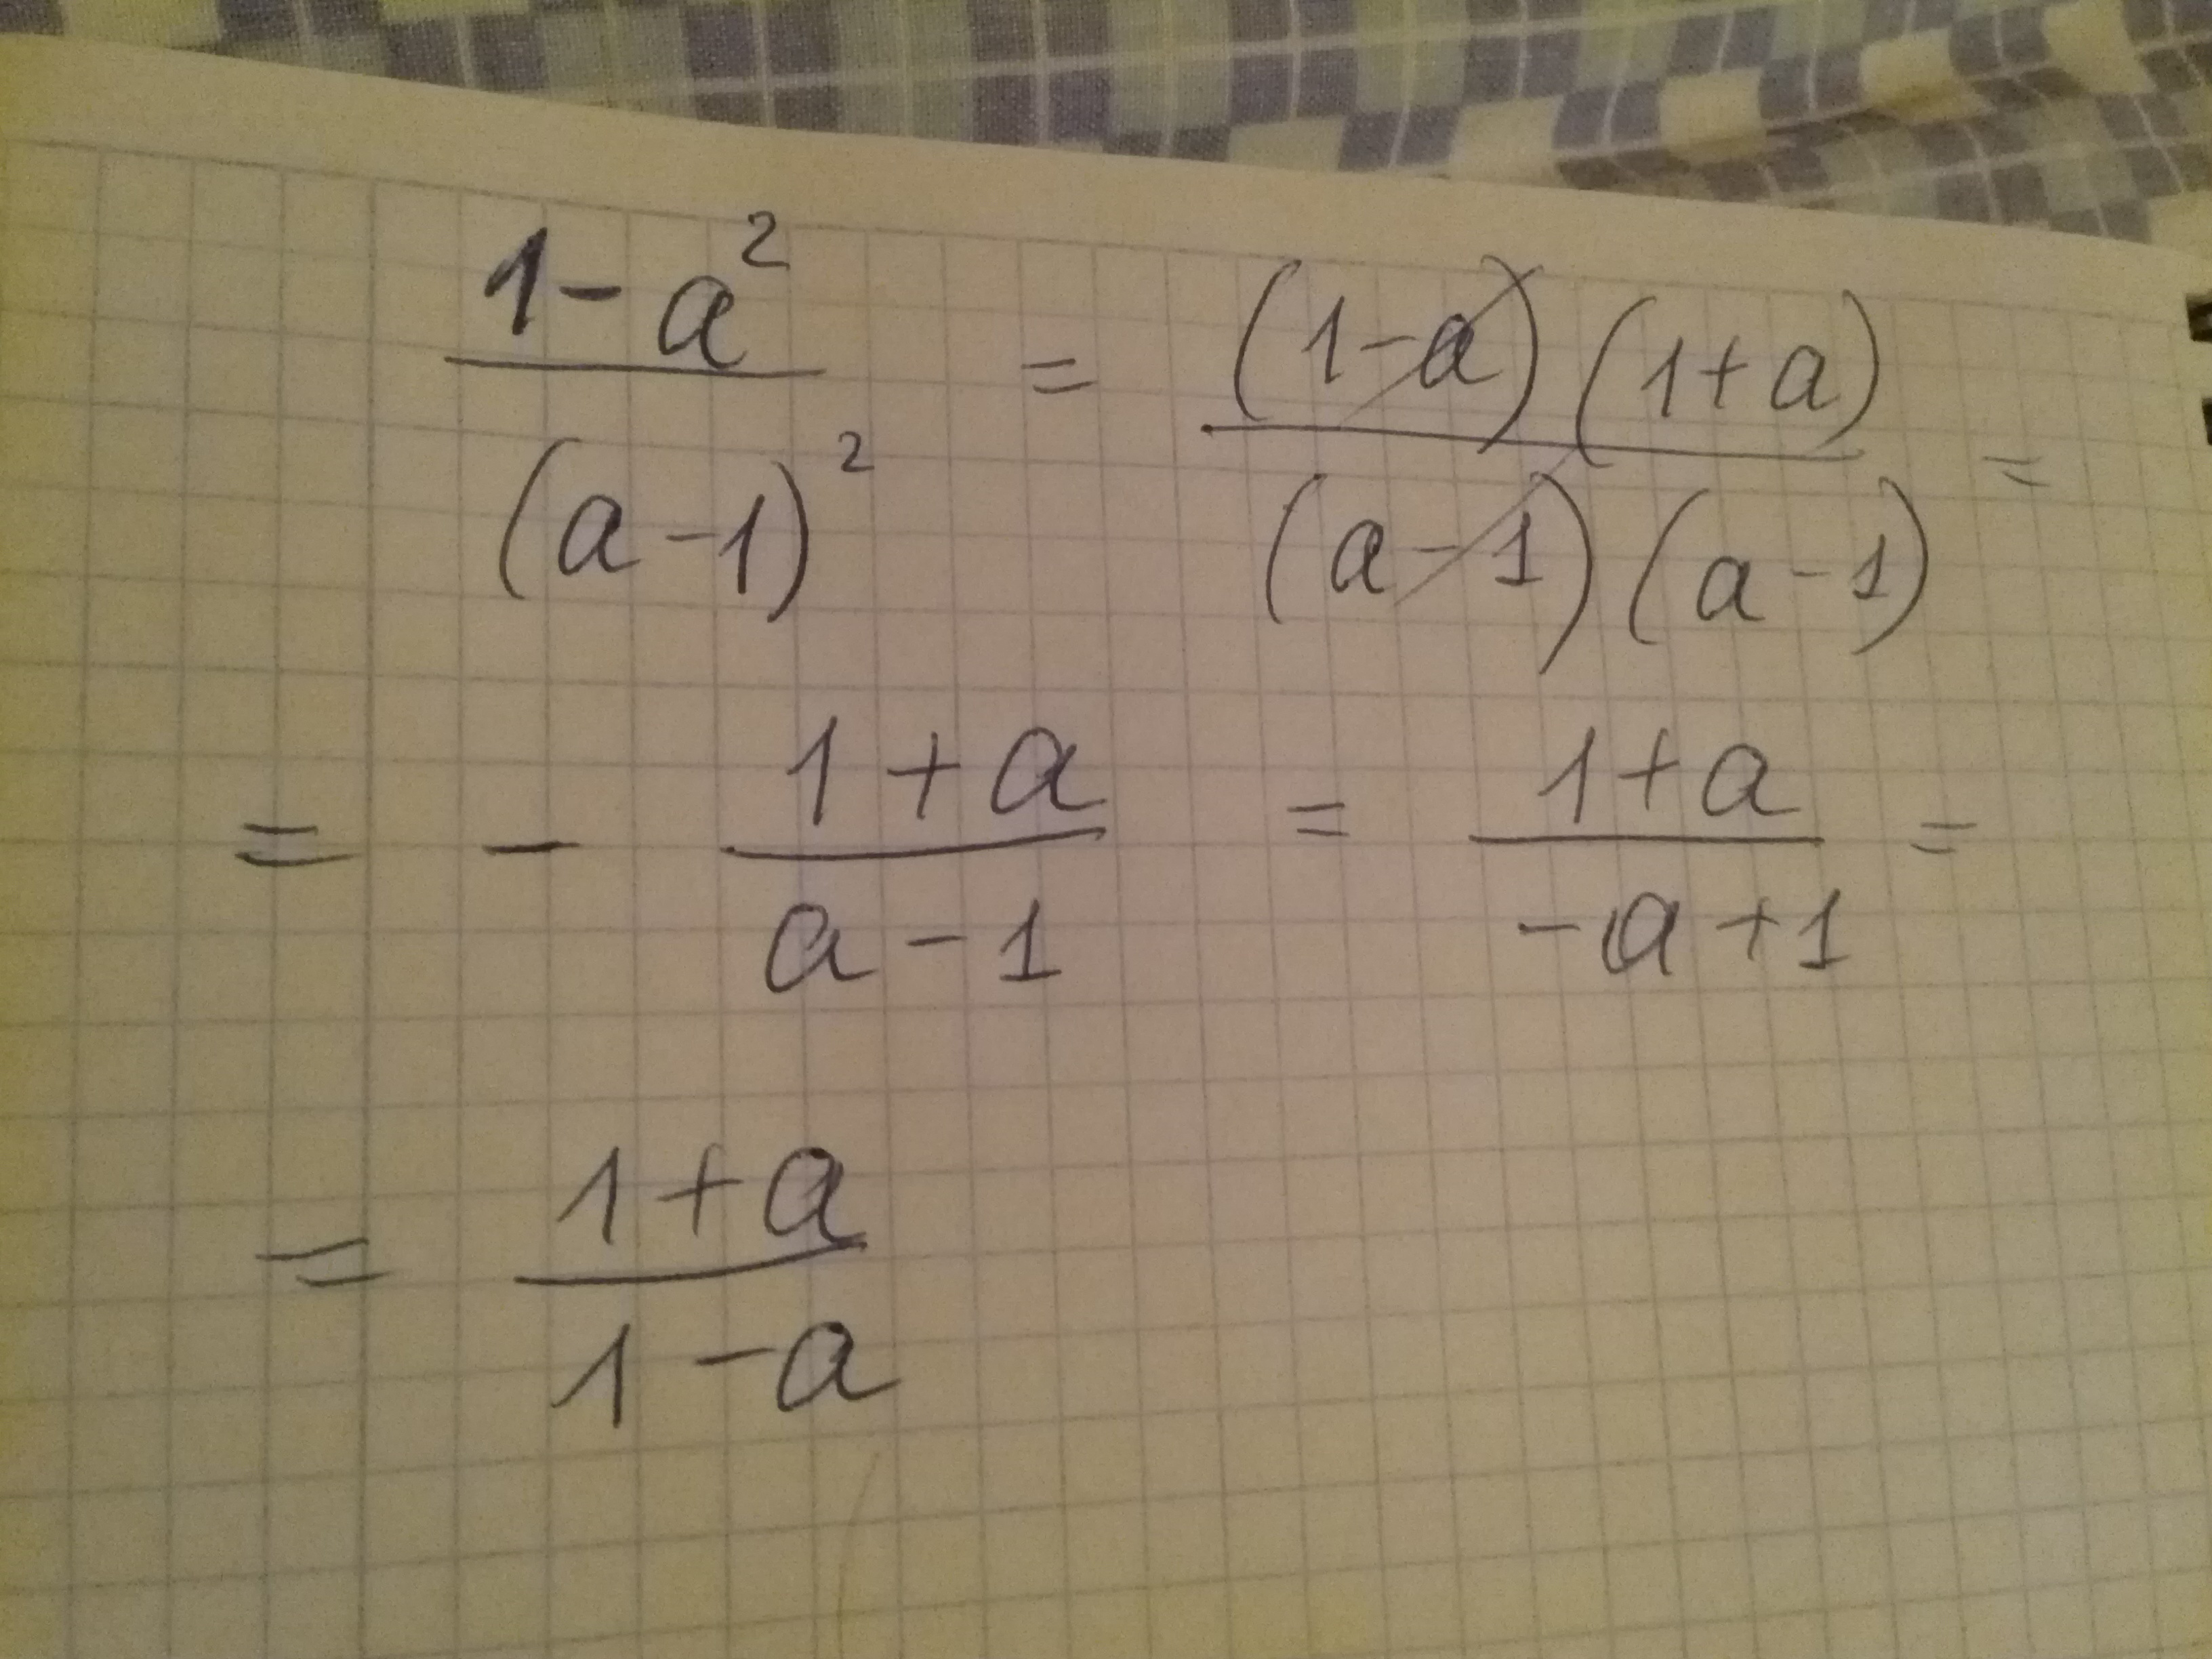 (1-a²)/(a-1)² = ((1-a)(1+a))/((a-1)(a-1)) =
= - (1+a)/(a-1) = (1+a)/(-a+1) =
= (1+a)/(1-a)